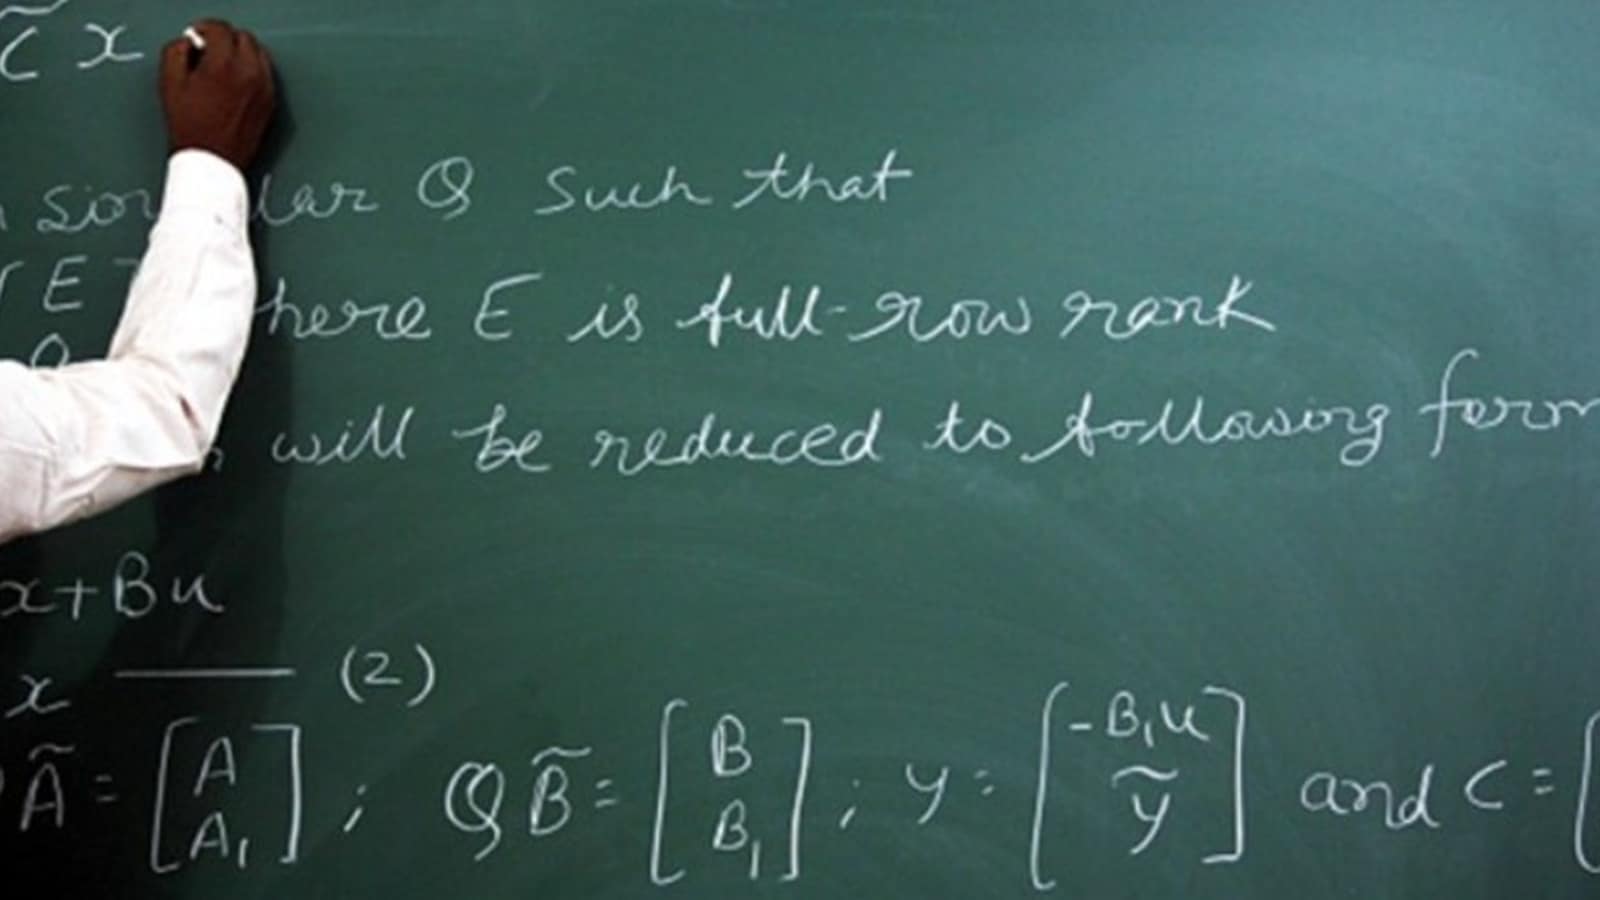 C̃ x
lar Q such that
E
here E is full-row rank
will be reduced to following form
x+Bu
x —— (2)
Ã = [A A₁] ; Q B̃ = [B B₁] ; y = [-B₁u ỹ] and C = [